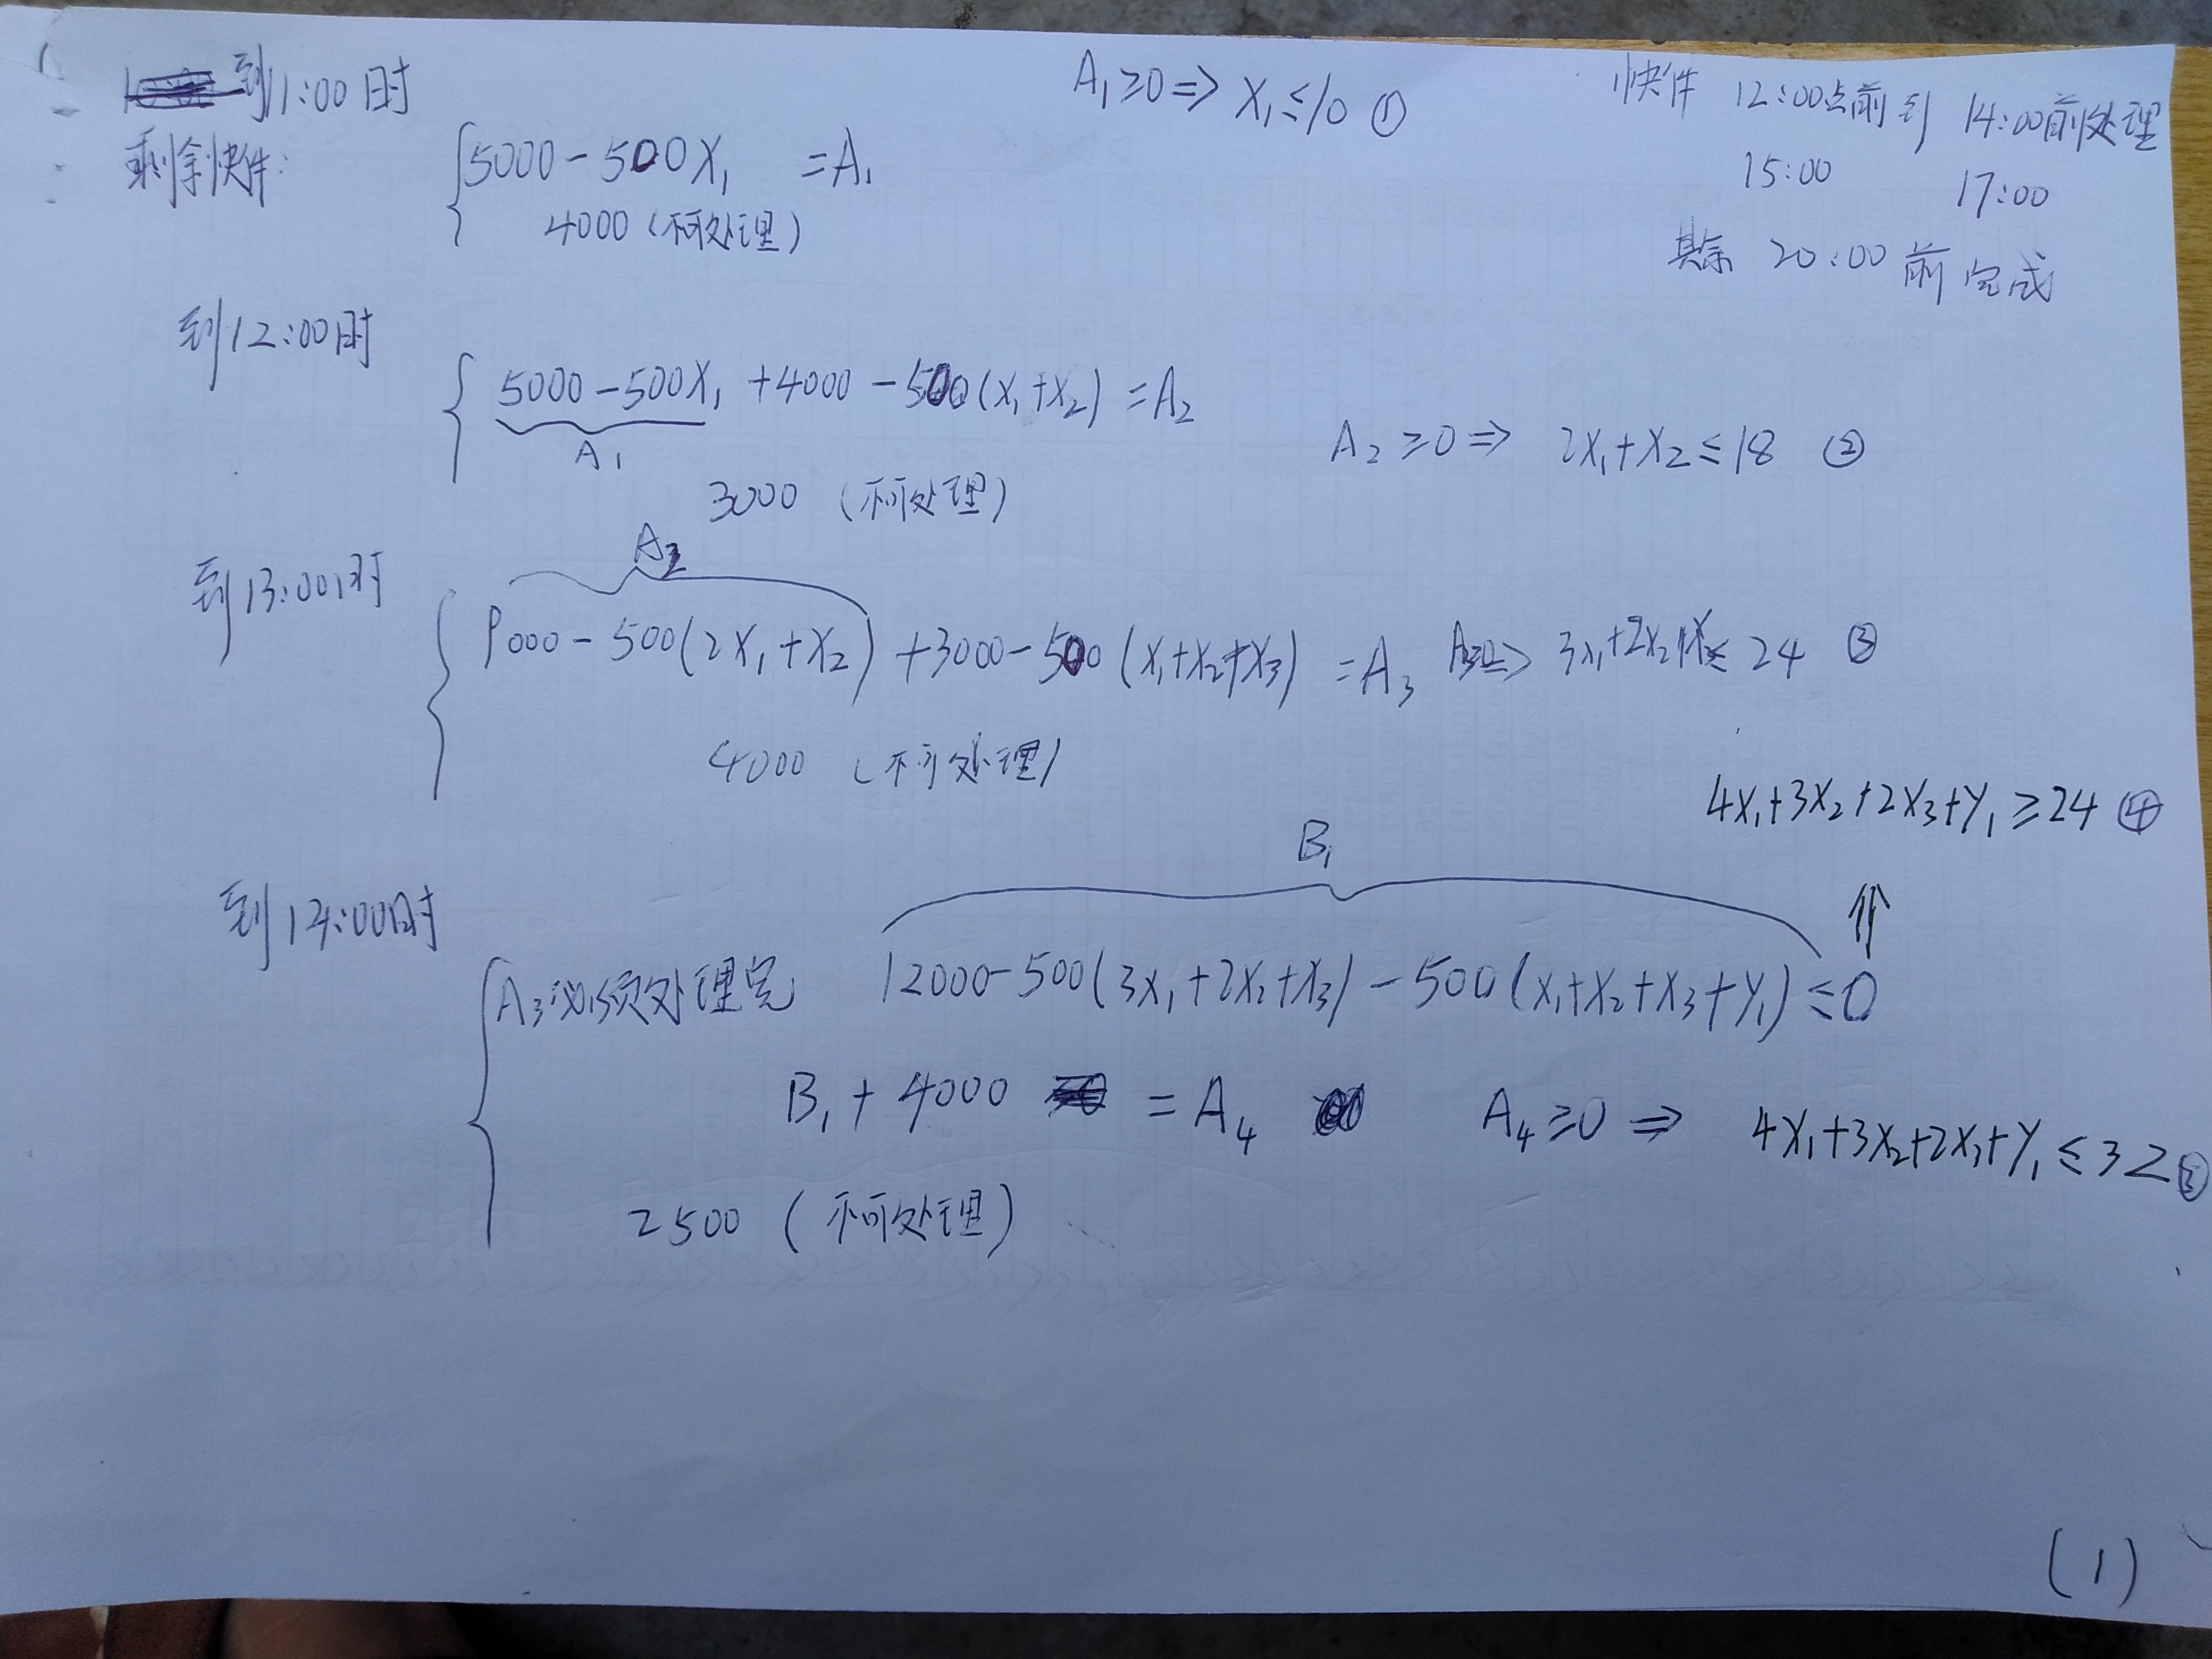 到11:00时
剩余快件:
5000-500X₁ =A₁
4000(不可处理)
A₁≥0⇒ X₁≤10 ①
快件 12:00点前到 14:00前处理
15:00 17:00
其余 20:00前完成
到12:00时
5000-500X₁+4000-500(X₁+X₂)=A₂
A₁
3000 (不可处理)
A₂≥0⇒ 2X₁+X₂≤18 ②
到13:00时
A₂
9000-500(2X₁+X₂)+3000-500(X₁+X₂+X₃)=A₃ A₃≥0⇒ 3X₁+2X₂+X₃≤24 ③
4000 (不可处理)
4X₁+3X₂+2X₃+Y₁≥24 ④
⇑
到14:00时
B₁
A₃必须处理完 12000-500(3X₁+2X₂+X₃)-500(X₁+X₂+X₃+Y₁)≤0
B₁+4000 =A₄ A₄≥0⇒ 4X₁+3X₂+2X₃+Y₁≤32 ⑤
2500 (不可处理)
(1)